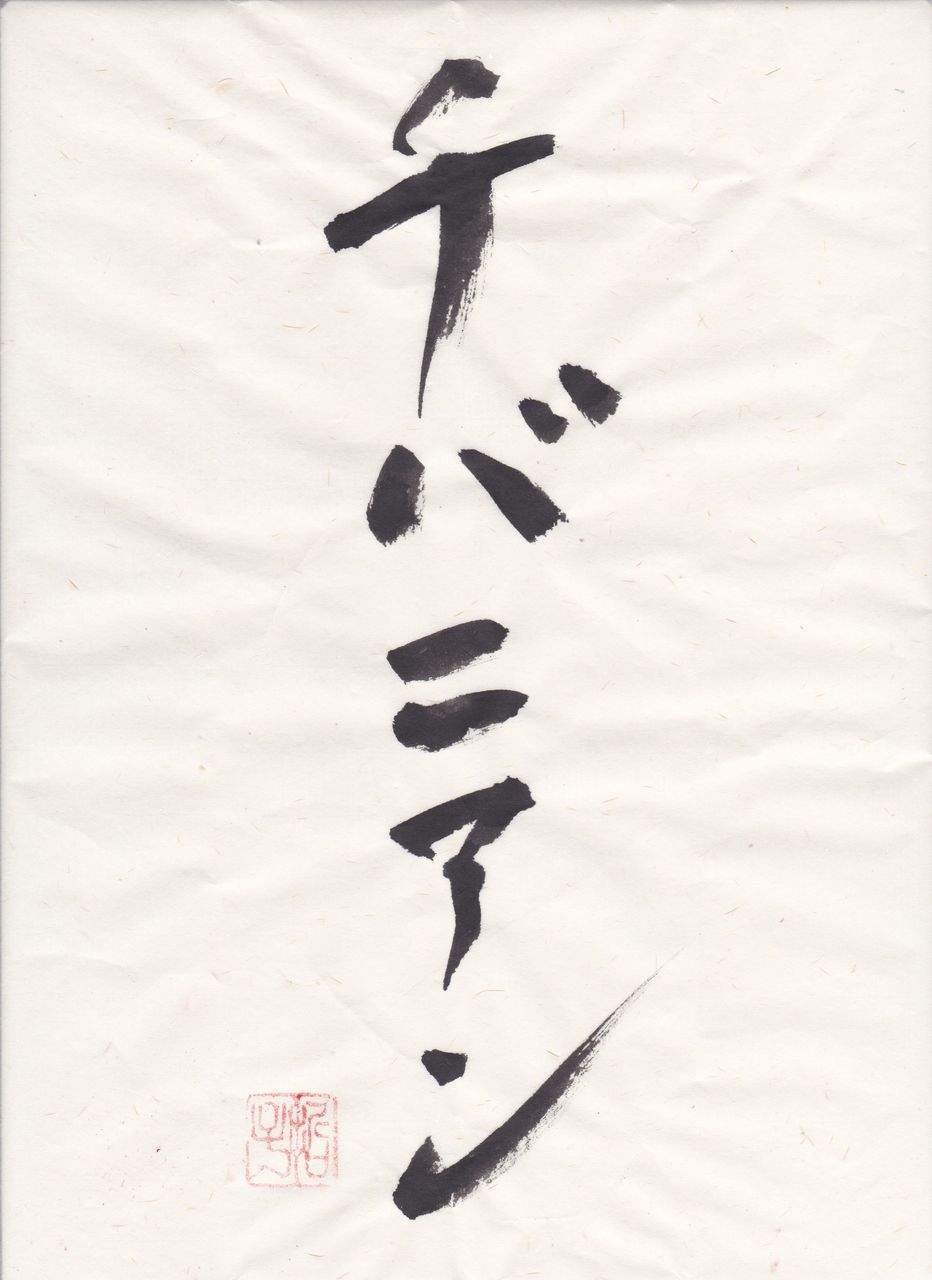 チバニアン